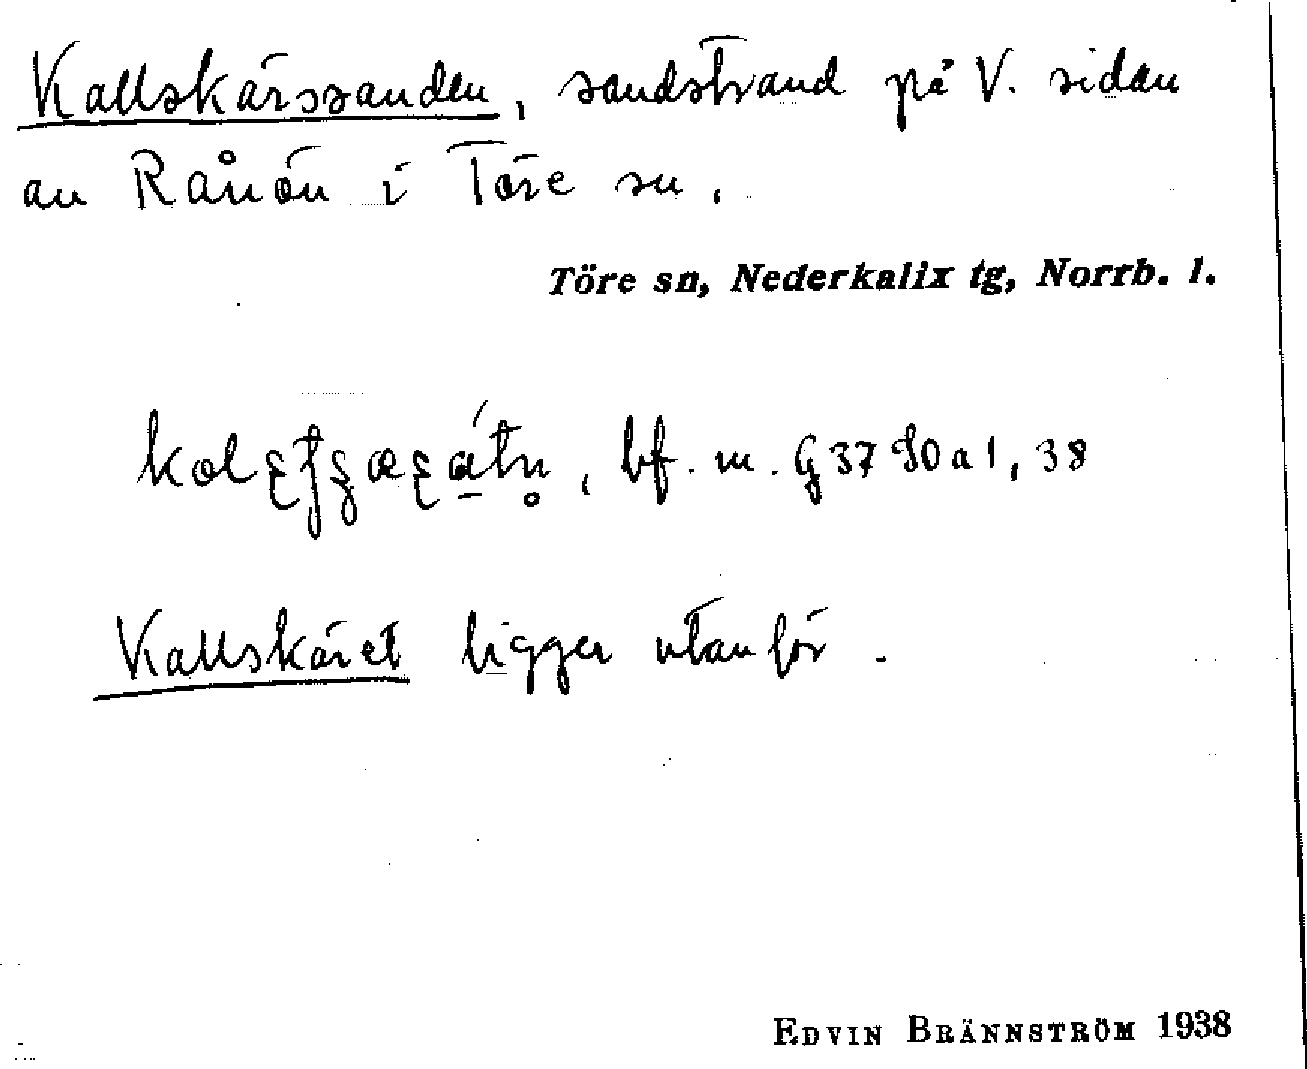 Kallskärssanden, sandstrand på V. sidan
av Rånön i Töre sn.
Töre sn, Nederkalix tg, Norrb. l.
bf. m.
Kallskäret ligger utanför.
EDVIN BRÄNNSTRÖM 1938